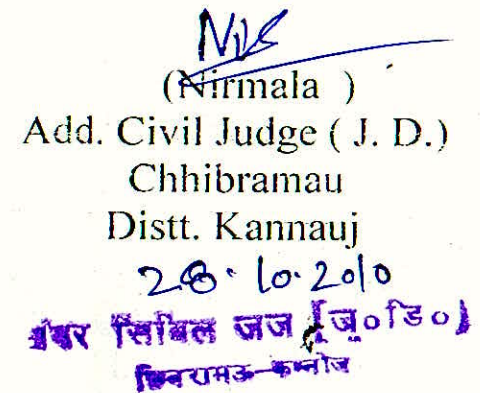 (Nirmala )
Add. Civil Judge ( J. D.)
Chhibramau
Distt. Kannauj
28.10.2010
सिविल जज (जू०डि०)
छिबरामऊ-कन्नौज